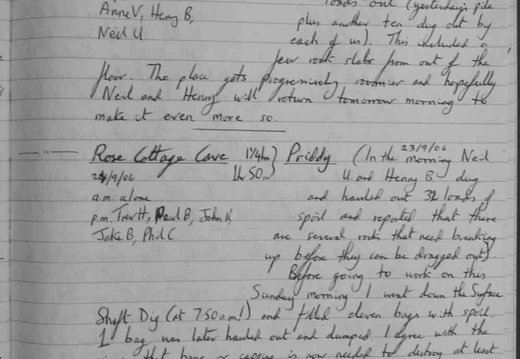 loads out (yesterday's pile
Anne V, Henry B, plus another ten dug out by
Neil U. each of us). This included a
few rock slabs from out of the
floor. The place gets progressively roomier and hopefully
Neil and Henry will return tomorrow morning to
make it even more so.
Rose Cottage Cave 1¼hr } Priddy (In the 23/9/06 morning Neil
24/9/06 1hr 50m U. and Henry B dug
a.m. alone and hauled out 32 loads of
p.m. Trev H, Paul B, John N, spoil and reported that there
Jake B, Phil C. are several rocks that need breaking
up before they can be dragged out).
Before going to work on this
Sunday morning I went down the Surface
Shaft Dig (at 7.50am!) and filled eleven bags with spoil.
1 bag was later hauled out and dumped. I agree with the
that bang or capping is now needed to destroy at least